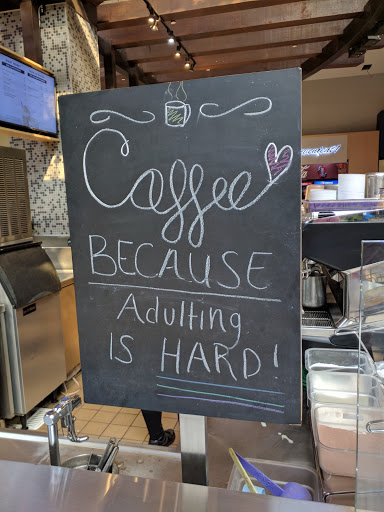 Coffee
BECAUSE
Adulting
IS HARD!